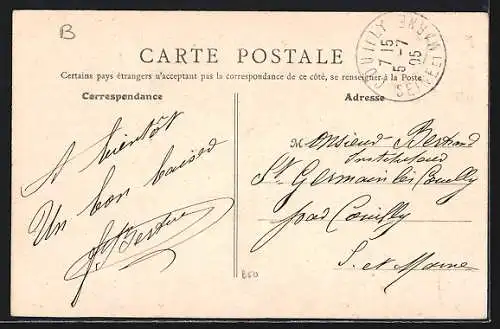 B
CARTE POSTALE
Certains pays étrangers n'acceptant pas la correspondance de ce côté, se renseigner à la Poste
Correspondance
Adresse
COUILLY
7 15
5 -7
05
SEINE ET MARNE
A bientôt
Un bon baiser
Monsieur Bertrand
St Germain les Couilly
par Couilly
S. et Marne